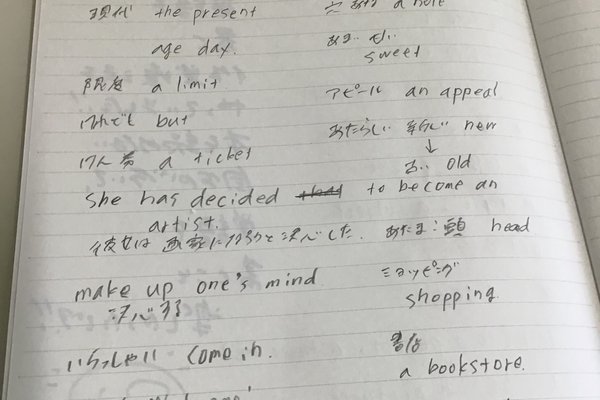 現代 the present
age day.
限度 a limit
けれども but
けん券 a ticket
She has decided to become an
artist.
彼女は画家になろうと決心した.
make up one's mind
決心する
いらっしゃい come in.
あな a hole
あまい
sweet
アピール an appeal
あたらしい 新しい new
↓
古い old
あたま:頭 head
ショッピング
shopping
書店
a bookstore.